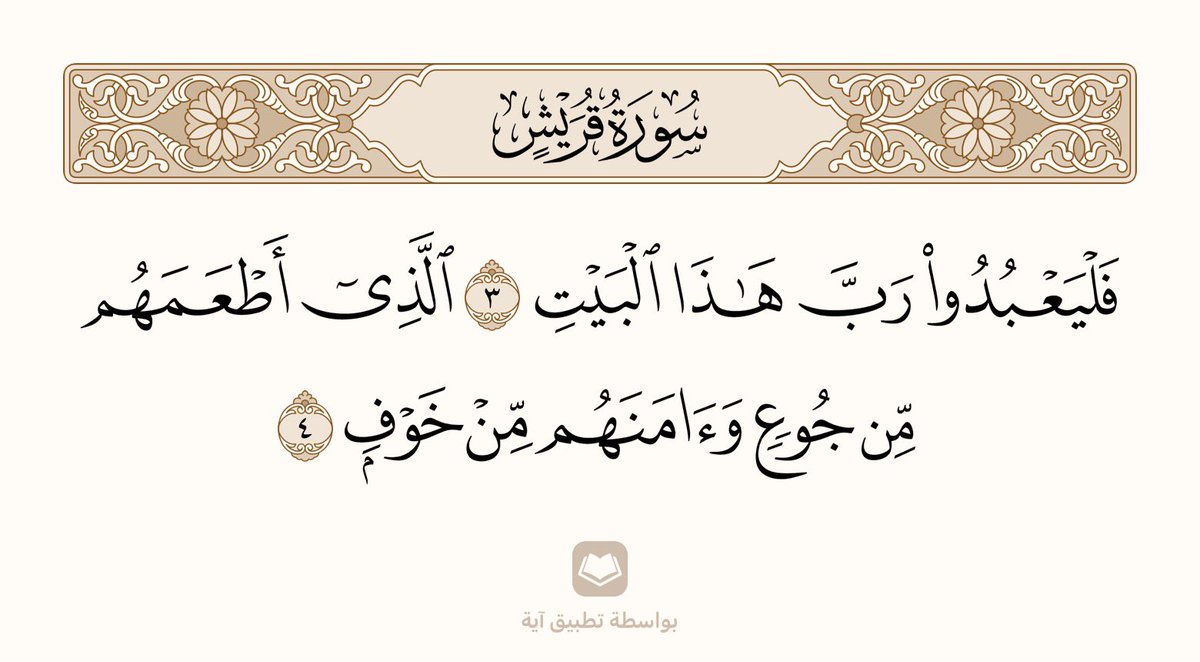 سُورَةُ قُرَيْشٍ
فَلْيَعْبُدُوا۟ رَبَّ هَـٰذَا ٱلْبَيْتِ ٣ ٱلَّذِىٓ أَطْعَمَهُم
مِّن جُوعٍ وَءَامَنَهُم مِّنْ خَوْفٍۭ ٤
بواسطة تطبيق آية